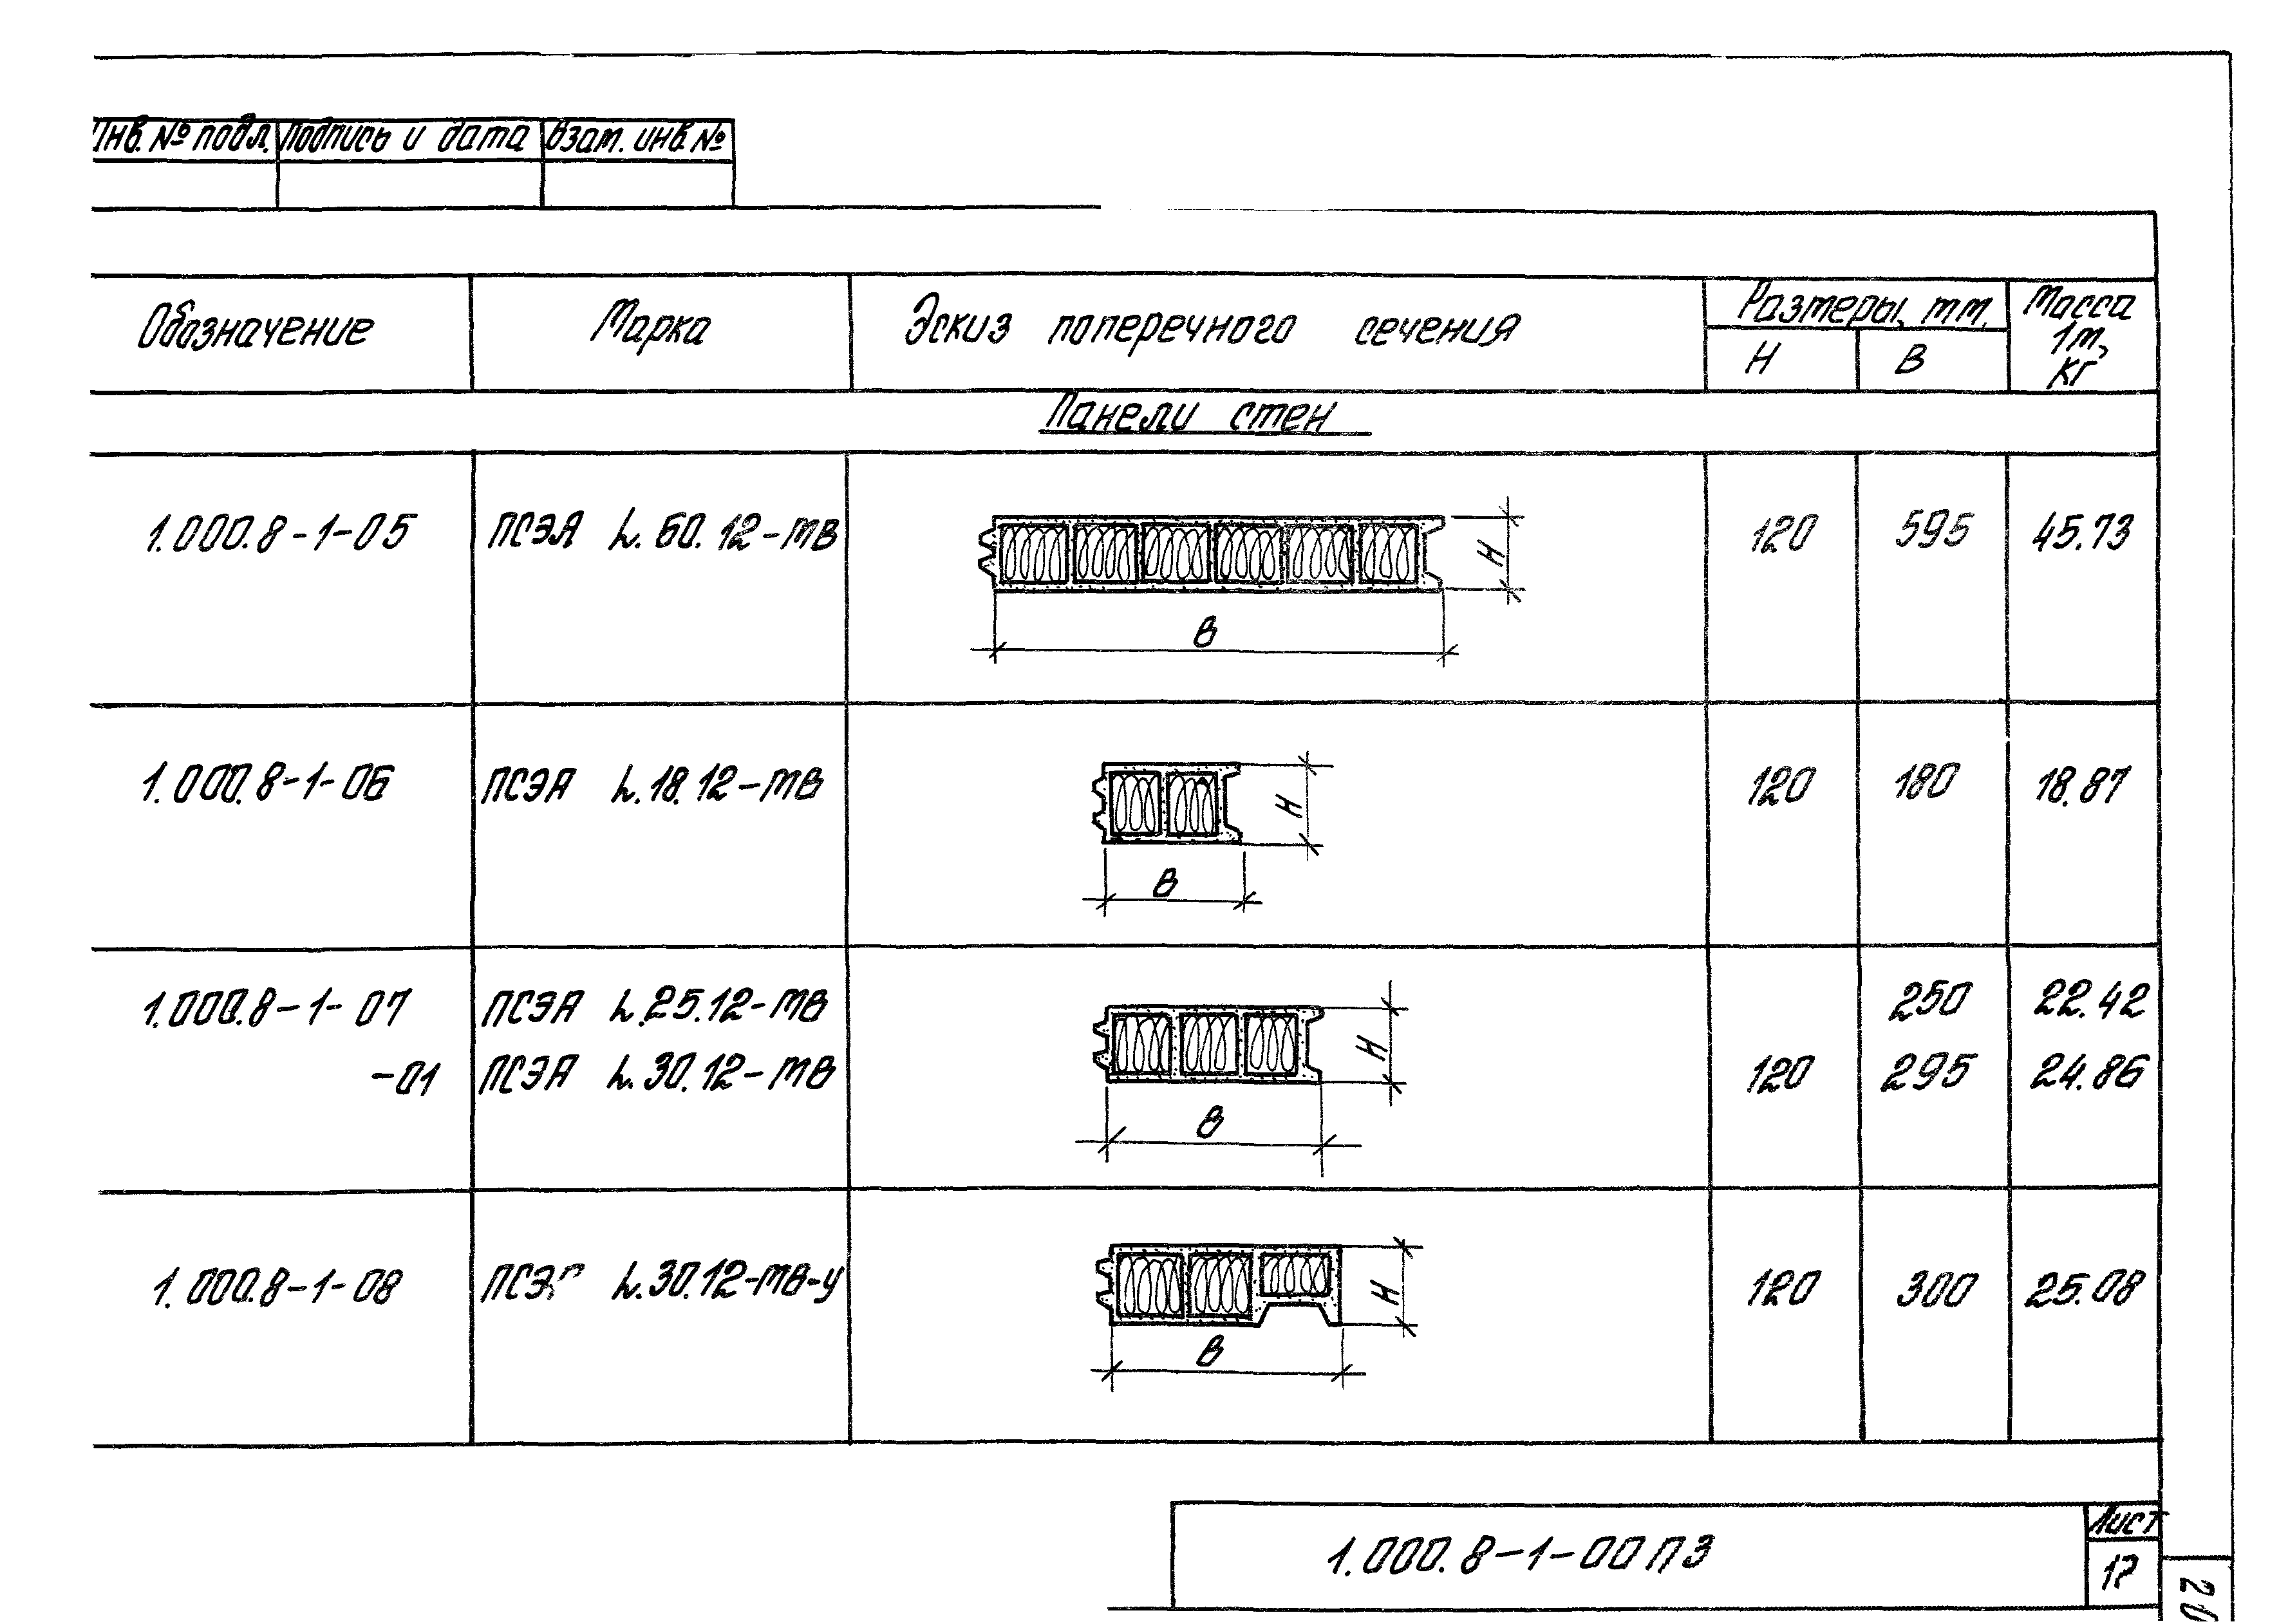 Инв. № подл. Подпись и дата Взам. инв. №
Обозначение Марка Эскиз поперечного сечения Размеры, мм. Масса 1м, кг
H B
Панели стен
1.000.8-1-05 ПСЭА L.60.12-ТВ 120 595 45.73
H
B
1.000.8-1-06 ПСЭА L.18.12-ТВ 120 180 18.87
H
B
1.000.8-1-07 ПСЭА L.25.12-ТВ 250 22.42
H
-01 ПСЭА L.30.12-ТВ 120 295 24.86
B
1.000.8-1-08 L.30.12-ТВ-У 120 300 25.08
H
B
1.000.8-1-00ПЗ
Лист